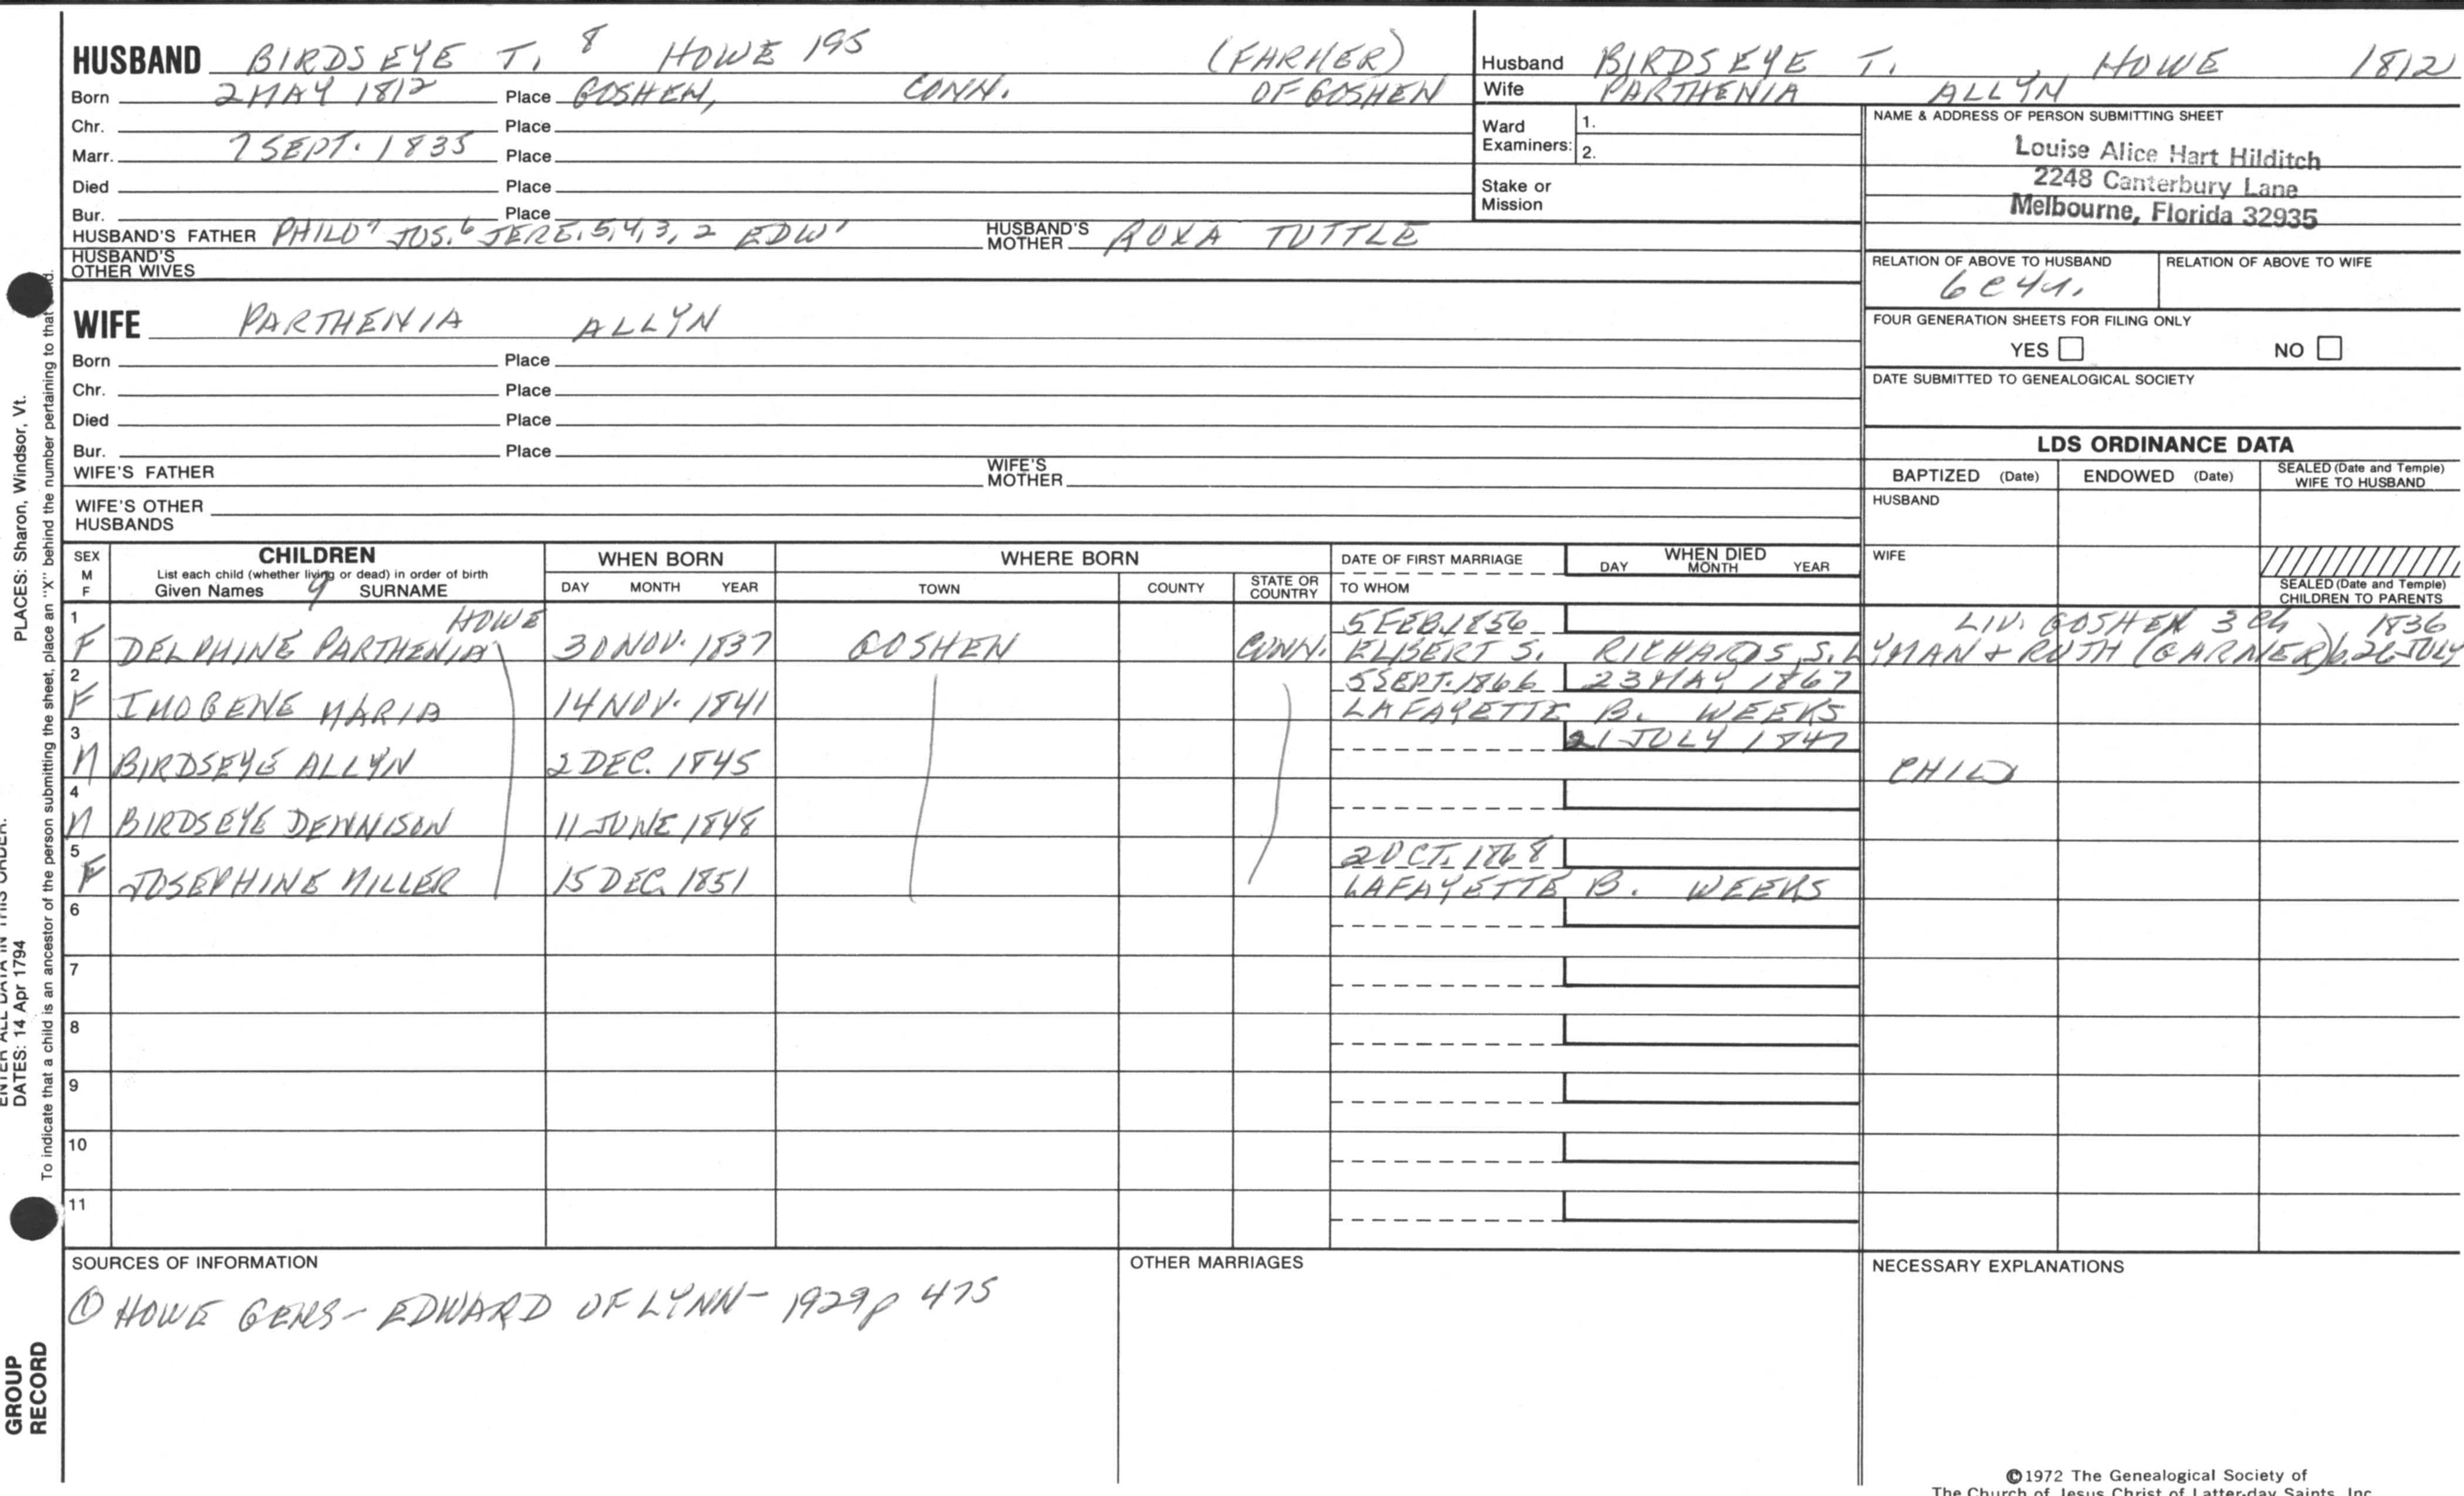 HUSBAND BIRDSEYE T. 8 HOWE 195 (FARMER)
Born 2 MAY 1812 Place GOSHEN, CONN. OF GOSHEN
Chr. Place
Marr. 7 SEPT. 1835 Place
Died Place
Bur. Place
HUSBAND'S FATHER PHILO7 JOS.6 JERE. 5, 4, 3, 2 EDW1 HUSBAND'S MOTHER ROXA TUTTLE
HUSBAND'S OTHER WIVES
Husband BIRDSEYE T. HOWE 1812
Wife PARTHENIA ALLYN
Ward Examiners: 1.
2.
Stake or Mission
NAME & ADDRESS OF PERSON SUBMITTING SHEET
Louise Alice Hart Hilditch
2248 Canterbury Lane
Melbourne, Florida 32935
RELATION OF ABOVE TO HUSBAND RELATION OF ABOVE TO WIFE
6C4R.
FOUR GENERATION SHEETS FOR FILING ONLY
YES NO
DATE SUBMITTED TO GENEALOGICAL SOCIETY
WIFE PARTHENIA ALLYN
Born Place
Chr. Place
Died Place
Bur. Place
WIFE'S FATHER WIFE'S MOTHER
WIFE'S OTHER HUSBANDS
LDS ORDINANCE DATA
BAPTIZED (Date) ENDOWED (Date) SEALED (Date and Temple) WIFE TO HUSBAND
HUSBAND
WIFE
SEALED (Date and Temple) CHILDREN TO PARENTS
SEX M F CHILDREN WHEN BORN WHERE BORN DATE OF FIRST MARRIAGE WHEN DIED
List each child (whether living or dead) in order of birth
Given Names 9 SURNAME DAY MONTH YEAR TOWN COUNTY STATE OR COUNTRY TO WHOM DAY MONTH YEAR
1 HOWE 5 FEB. 1856 LIV. GOSHEN 3 Ch 1836
F DELPHINE PARTHENIA 30 NOV. 1837 GOSHEN CONN. ELBERT S. RICHARDS, S. LYMAN & RUTH (GARNER) b. 26 JULY
2 5 SEPT. 1866 23 MAY 1867
F IMOGENE MARIA 14 NOV. 1841 LAFAYETTE B. WEEKS
3 21 JULY 1847
M BIRDSEYE ALLYN 2 DEC. 1845 CHILD
4
M BIRDSEYE DENNISON 11 JUNE 1848
5 2 OCT. 1868
F JOSEPHINE MILLER 15 DEC. 1851 LAFAYETTE B. WEEKS
6
7
8
9
10
11
SOURCES OF INFORMATION OTHER MARRIAGES NECESSARY EXPLANATIONS
① HOWE GENS - EDWARD OF LYNN - 1929 p 475
©1972 The Genealogical Society of
The Church of Jesus Christ of Latter-day Saints, Inc.
PLACES: Sharon, Windsor, Vt.
ENTER ALL DATA IN THIS ORDER:
DATES: 14 Apr 1794
To indicate that a child is an ancestor of the person submitting the sheet, place an "X" behind the number pertaining to that child.
GROUP
RECORD